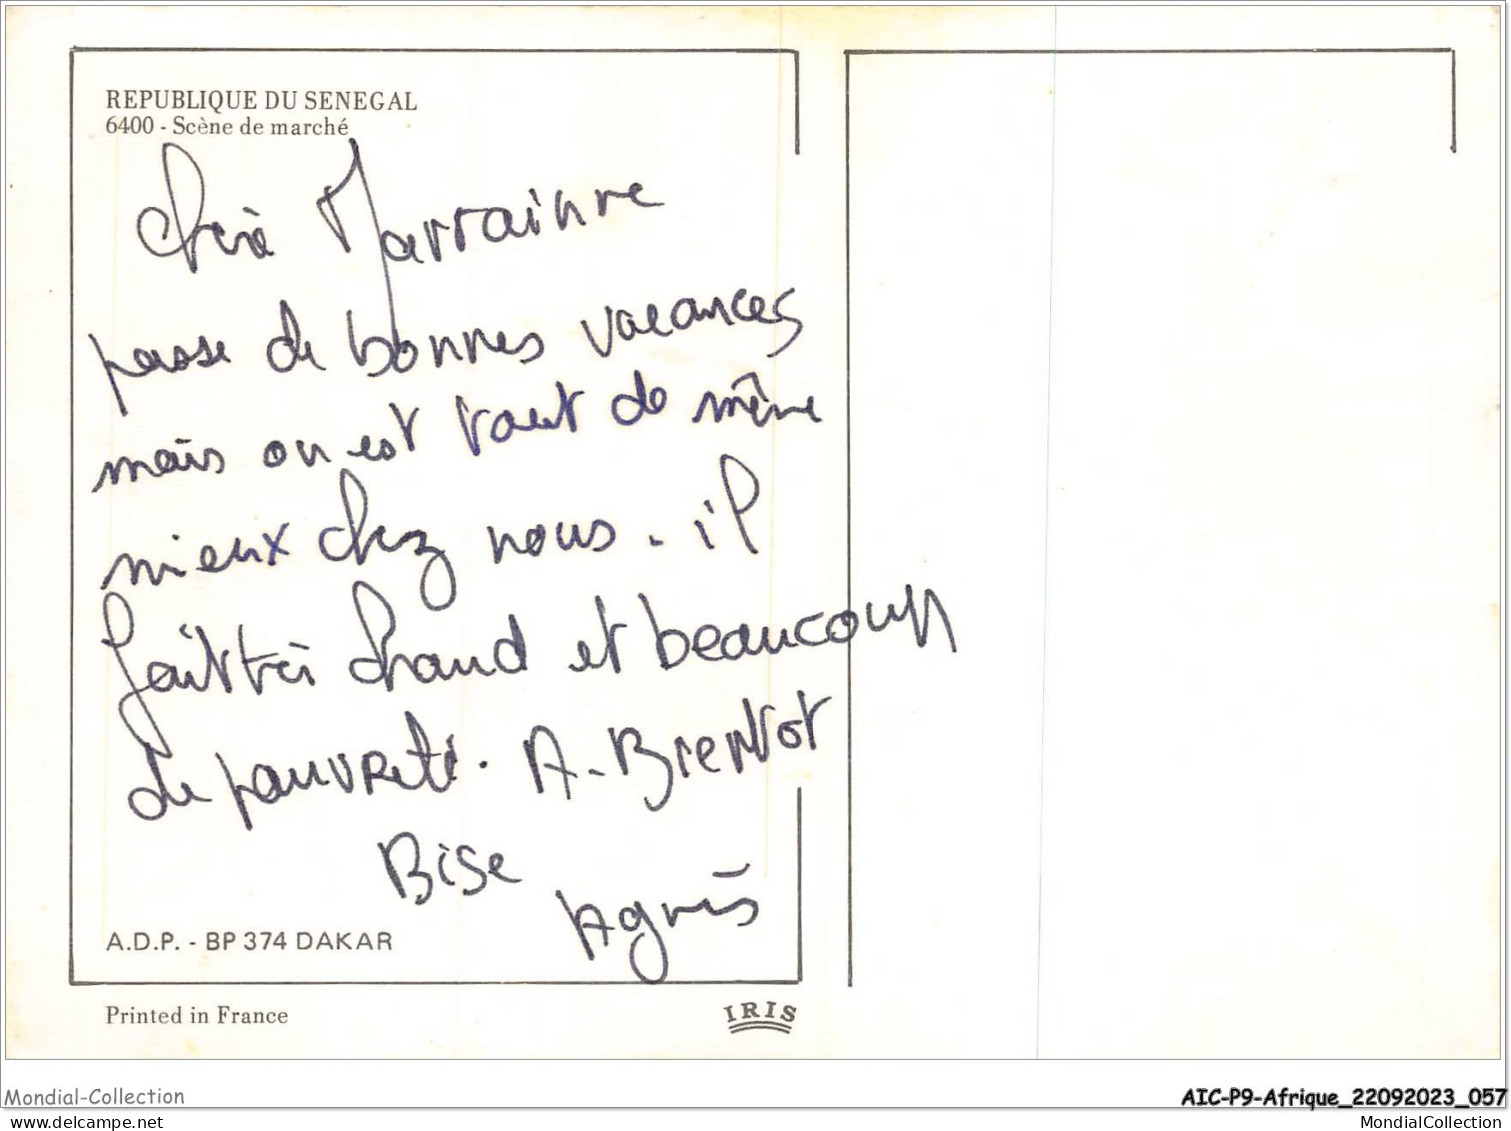 REPUBLIQUE DU SENEGAL
6400 - Scène de marché
Chère Marrainne
passe de bonnes vacances
mais on est tout de même
mieux chez nous. il
fait très chaud et beaucoup
de pauvreté. A. Bientot
Bise
Agnès
A.D.P. - BP 374 DAKAR
Printed in France
IRIS
Mondial-Collection
AIC-P9-Afrique_22092023_057
MondialCollection.com
MondialCollection